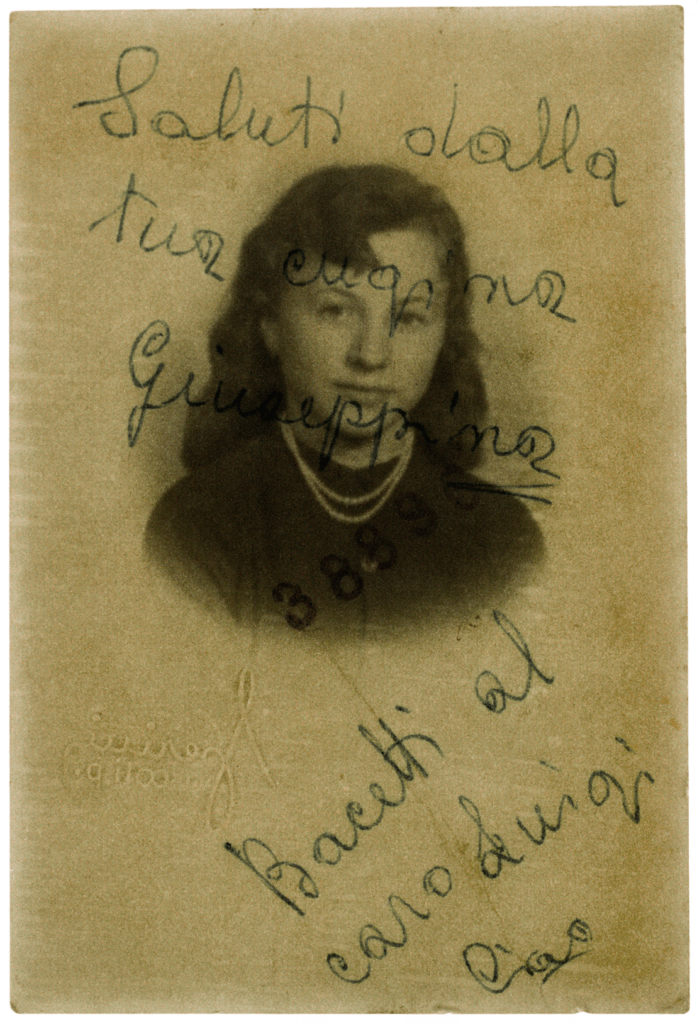 Saluti dalla
tua cugina
Giuseppina
3889
Bacetti al
caro Luigi
Ciao